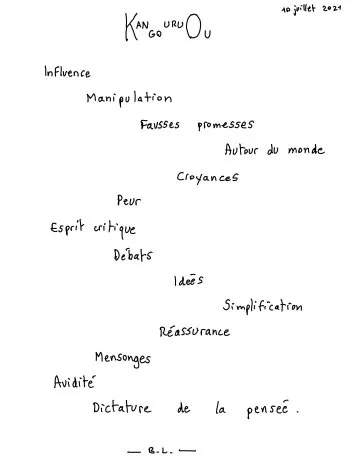 10 juillet 2021
KANGOUROU OU
Influence
Manipulation
Fausses promesses
Autour du monde
Croyances
Peur
Esprit critique
Débats
Ideés
Simplification
Réassurance
Mensonges
Avidité
Dictature de la penseé.
— B.L. —